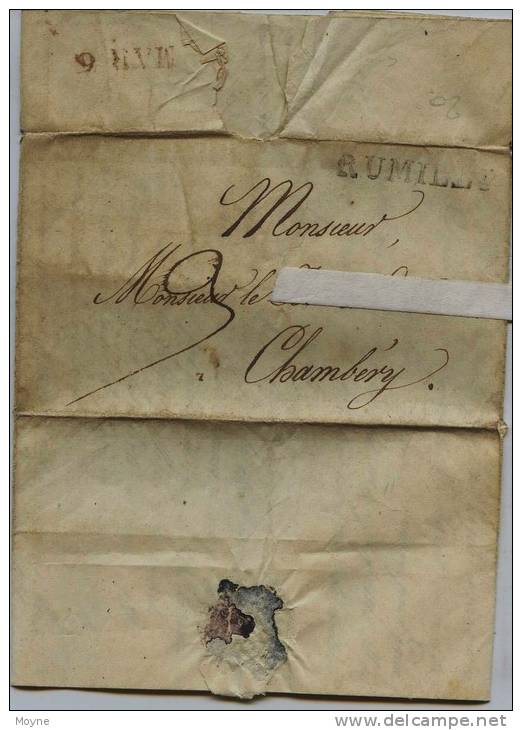 9
20
RUMILLY
Monsieur,
Monsieur le
3
Chambéry.
Moyne
www.delcampe.net